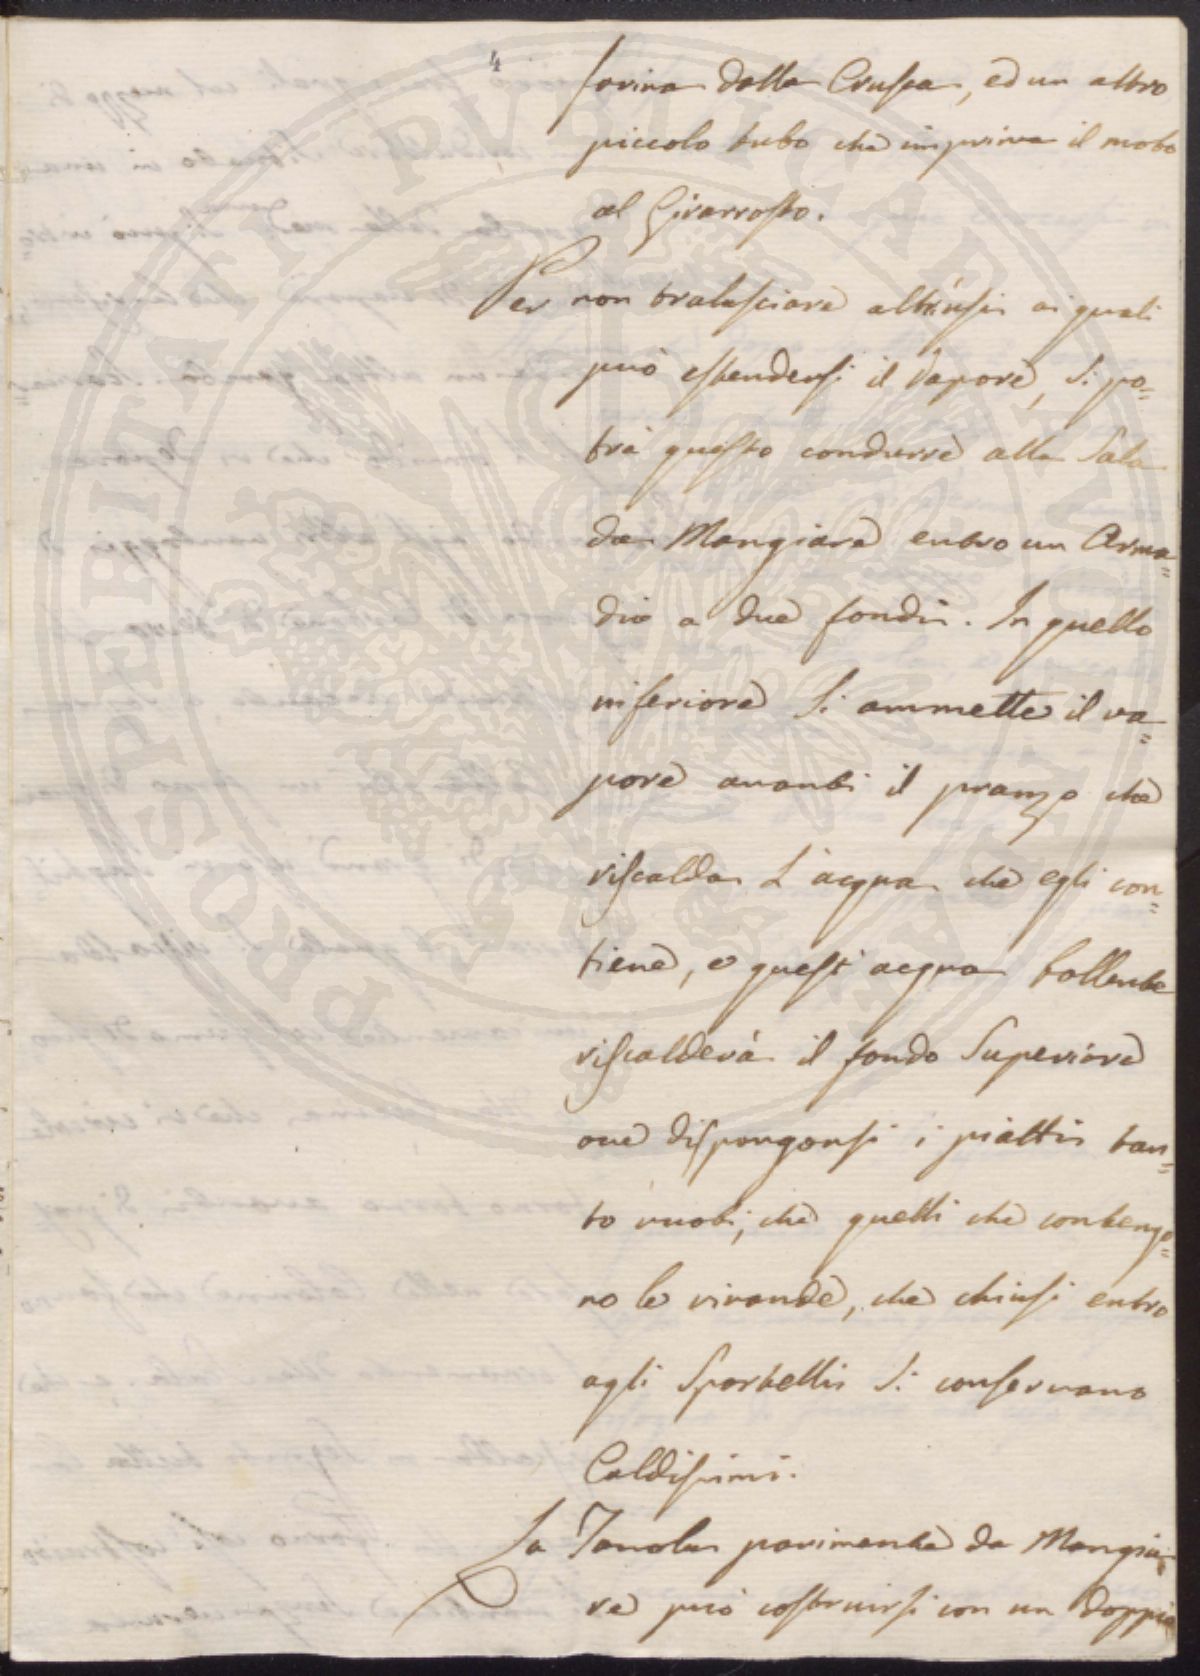 4
farina dalla Crusca, ed un altro
piccolo tubo che imprima il moto
al Girarrosto.
Per non tralasciare altr'usi ai quali
può estendersi il Vapore, si po=
trà questo condurre alla Sala
da Mangiare entro un Arma=
dio a due fondi. In quello
inferiore si ammette il va=
pore avanti il pranzo che
riscalda L'acqua che egli con=
tiene, e quest'acqua bollente
riscalderà il fondo Superiore
ove dispongonsi i piatti tan=
to vuoti, che quelli che contengo=
no le vivande, che chiusi entro
agli Sportelli si conservano
Caldissimi.
La Tavola parimente da Mangia=
re può costruirsi con un doppio
PROSPERITATI PVBLICAE AVGENDAE